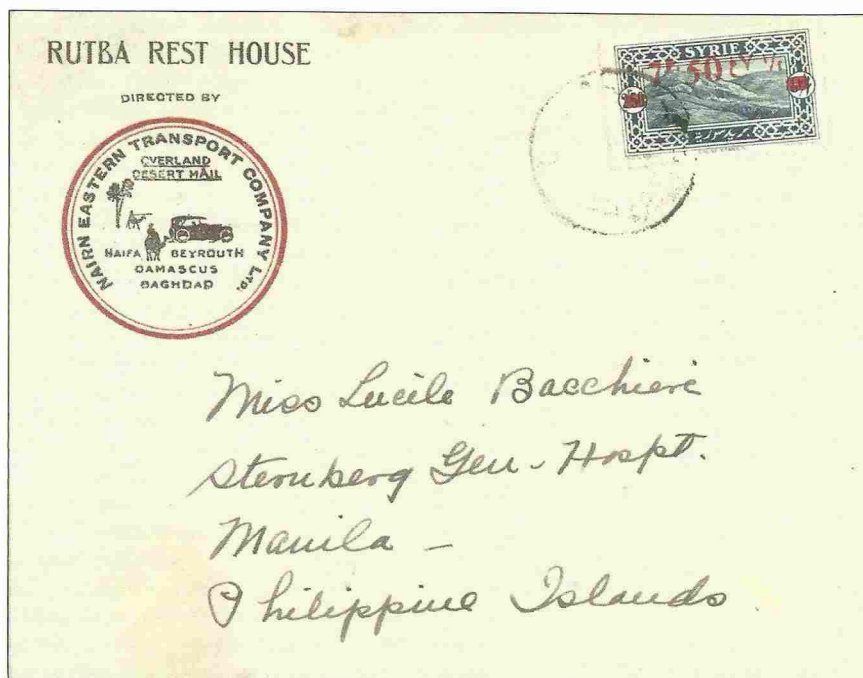 RUTBA REST HOUSE
DIRECTED BY
NAIRN EASTERN TRANSPORT COMPANY LTD.
OVERLAND
DESERT MAIL
HAIFA BEYROUTH
DAMASCUS
BAGHDAD
SYRIE
7P 50
Miss Lucile Bacchieri
Sternberg Gen. Hospt.
Manila —
Philippine Islands